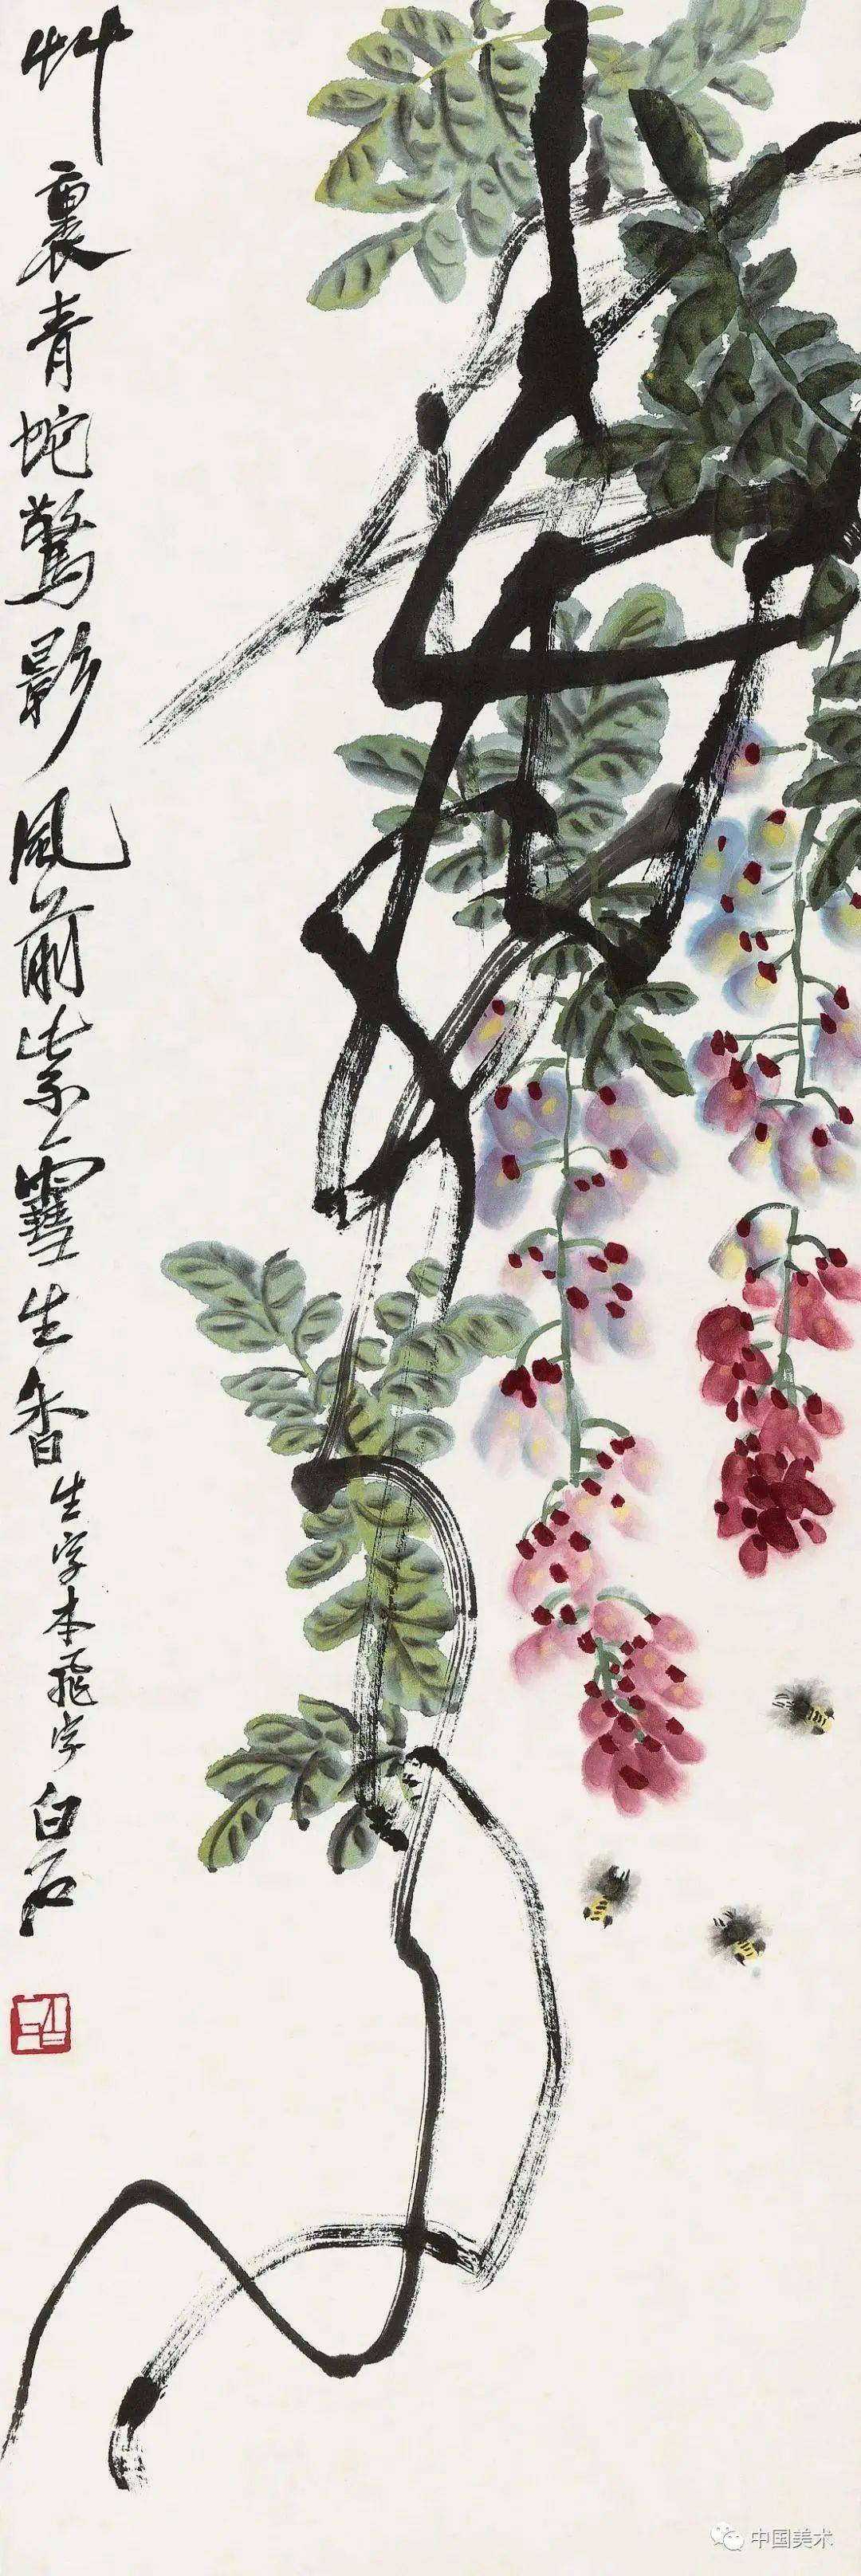 艸裏青蛇驚影風前紫雪生香生字本飛字白石
中国美术